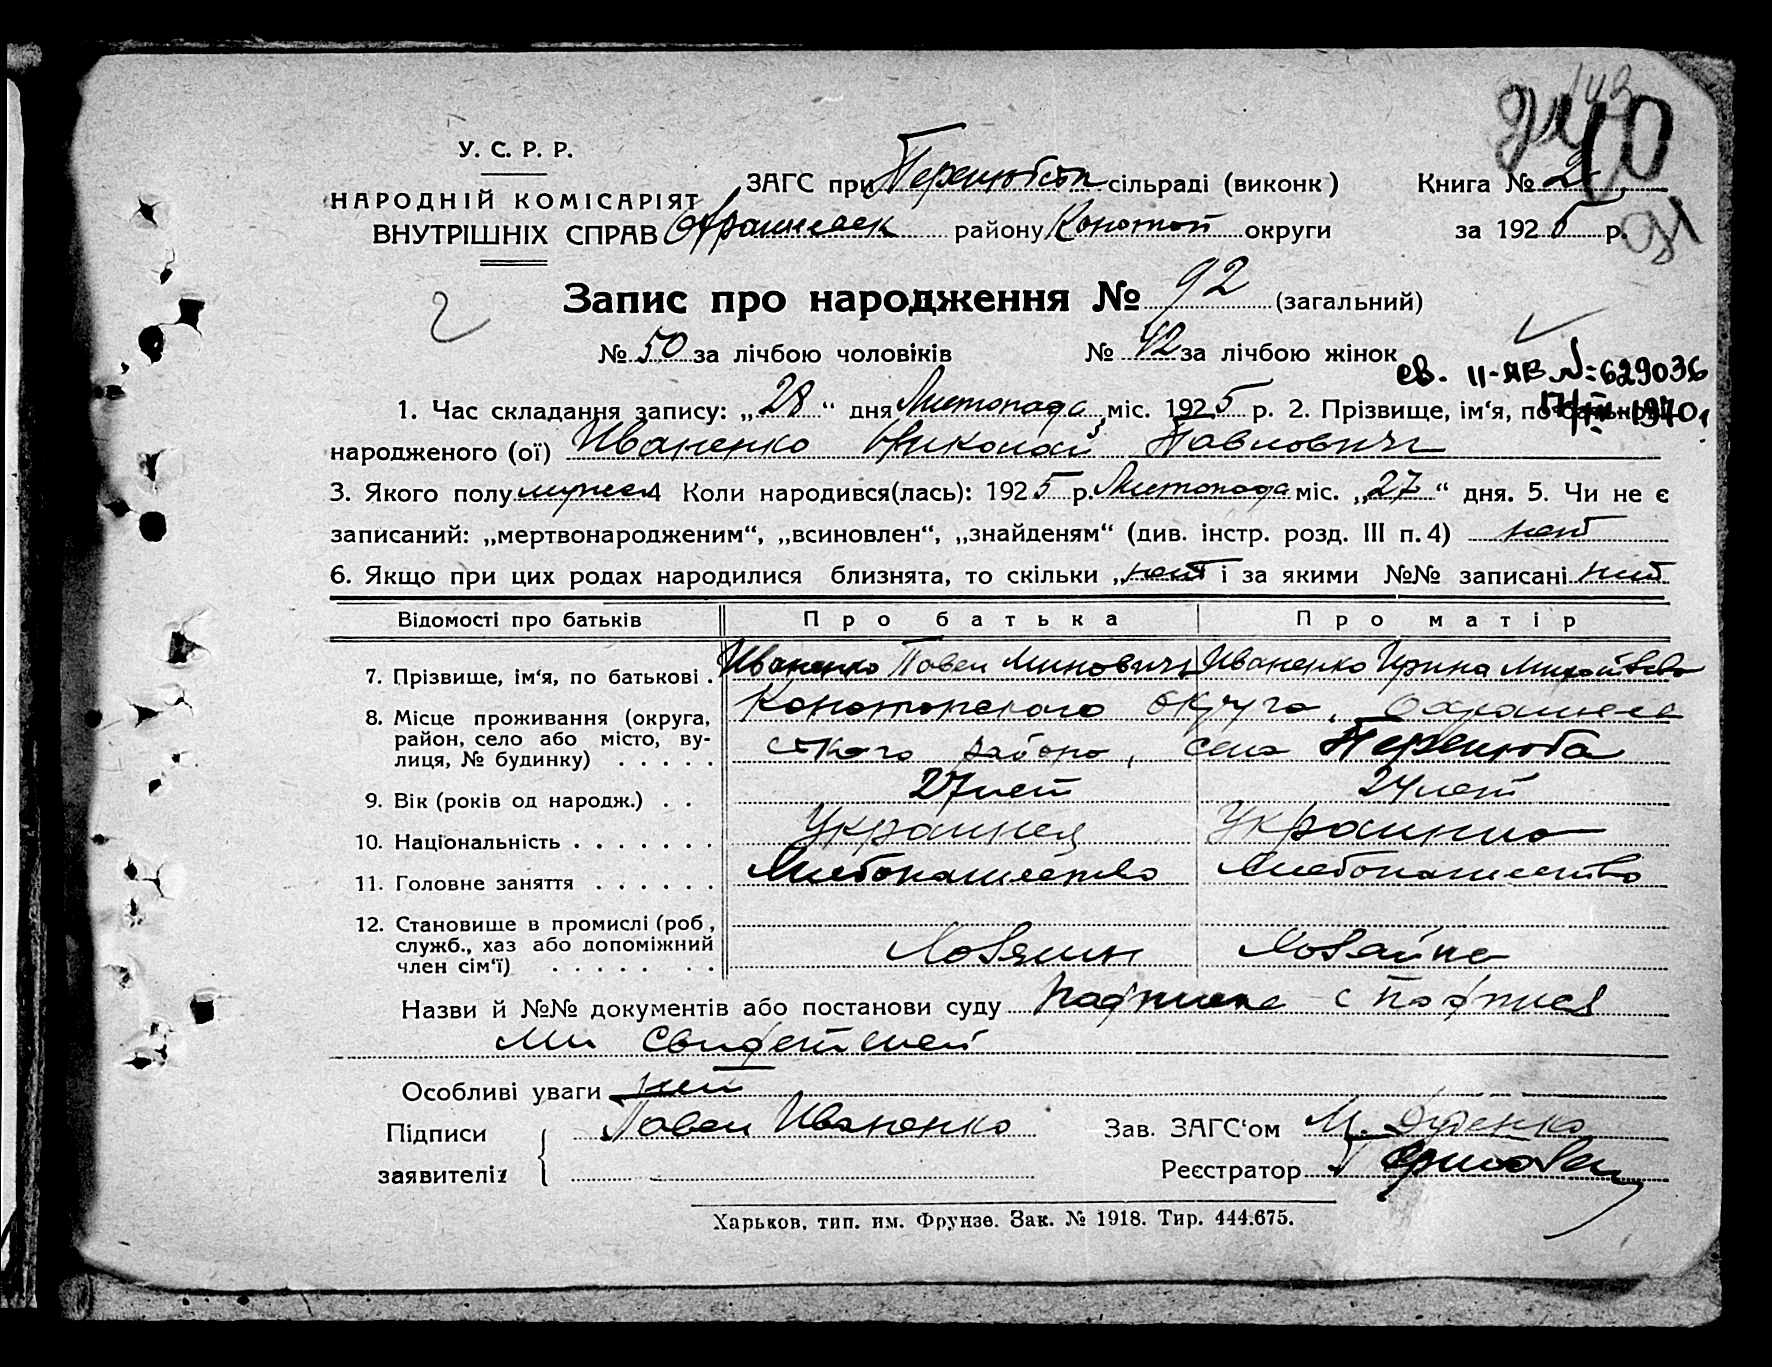 У. С. Р. Р.
НАРОДНІЙ КОМІСАРІЯТ
ВНУТРІШНІХ СПРАВ
ЗАГС при сільраді (виконк)
району Конотоп округи
Книга № 2
за 1925 р.
Запис про народження № 92 (загальний)
№ 50 за лічбою чоловіків № 42 за лічбою жінок
св. II-ЯВ №629036
1. Час складання запису: „28“ дня Листопада міс. 1925 р. 2. Прізвище, ім‘я, по батькові
1970
народженого (ої) Иваненко Николай Павлович
3. Якого полу 4 Коли народився(лась): 1925 р. Листопада міс. „27“ дня. 5. Чи не є
записаний: „мертвонародженим“, „всиновлен“, „знайденям“ (див. інстр. розд. III п. 4) нет
6. Якщо при цих родах народилися близнята, то скільки „нет і за якими №№ записані нет
Відомості про батьків Про батька Про матір
7. Прізвище, ім‘я, по батькові . Иваненко Павел Минович Иваненко Ирина
8. Місце проживання (округа, район, село або місто, вулиця, № будинку) . . . . . Конотопского округа,
ского района, села Перекопа
9. Вік (років од народж.) . . 27 лет 24 лет
10. Національність . . . . . . . Украинец Украинка
11. Головне заняття . . . . . . Хлебопашество Хлебопашество
12. Становище в промислі (роб, служб., хаз або допоміжний член сім‘ї) . . . . . . . Хозяин Хозяйка
Назви й №№ документів або постанови суду подписка с подпися
ми свидетелей
Особливі уваги нет
Підписи заявителів Павел Иваненко
Зав. ЗАГС‘ом
Реєстратор
Харьков, тип. им. Фрунзе. Зак. № 1918. Тир. 444.675.